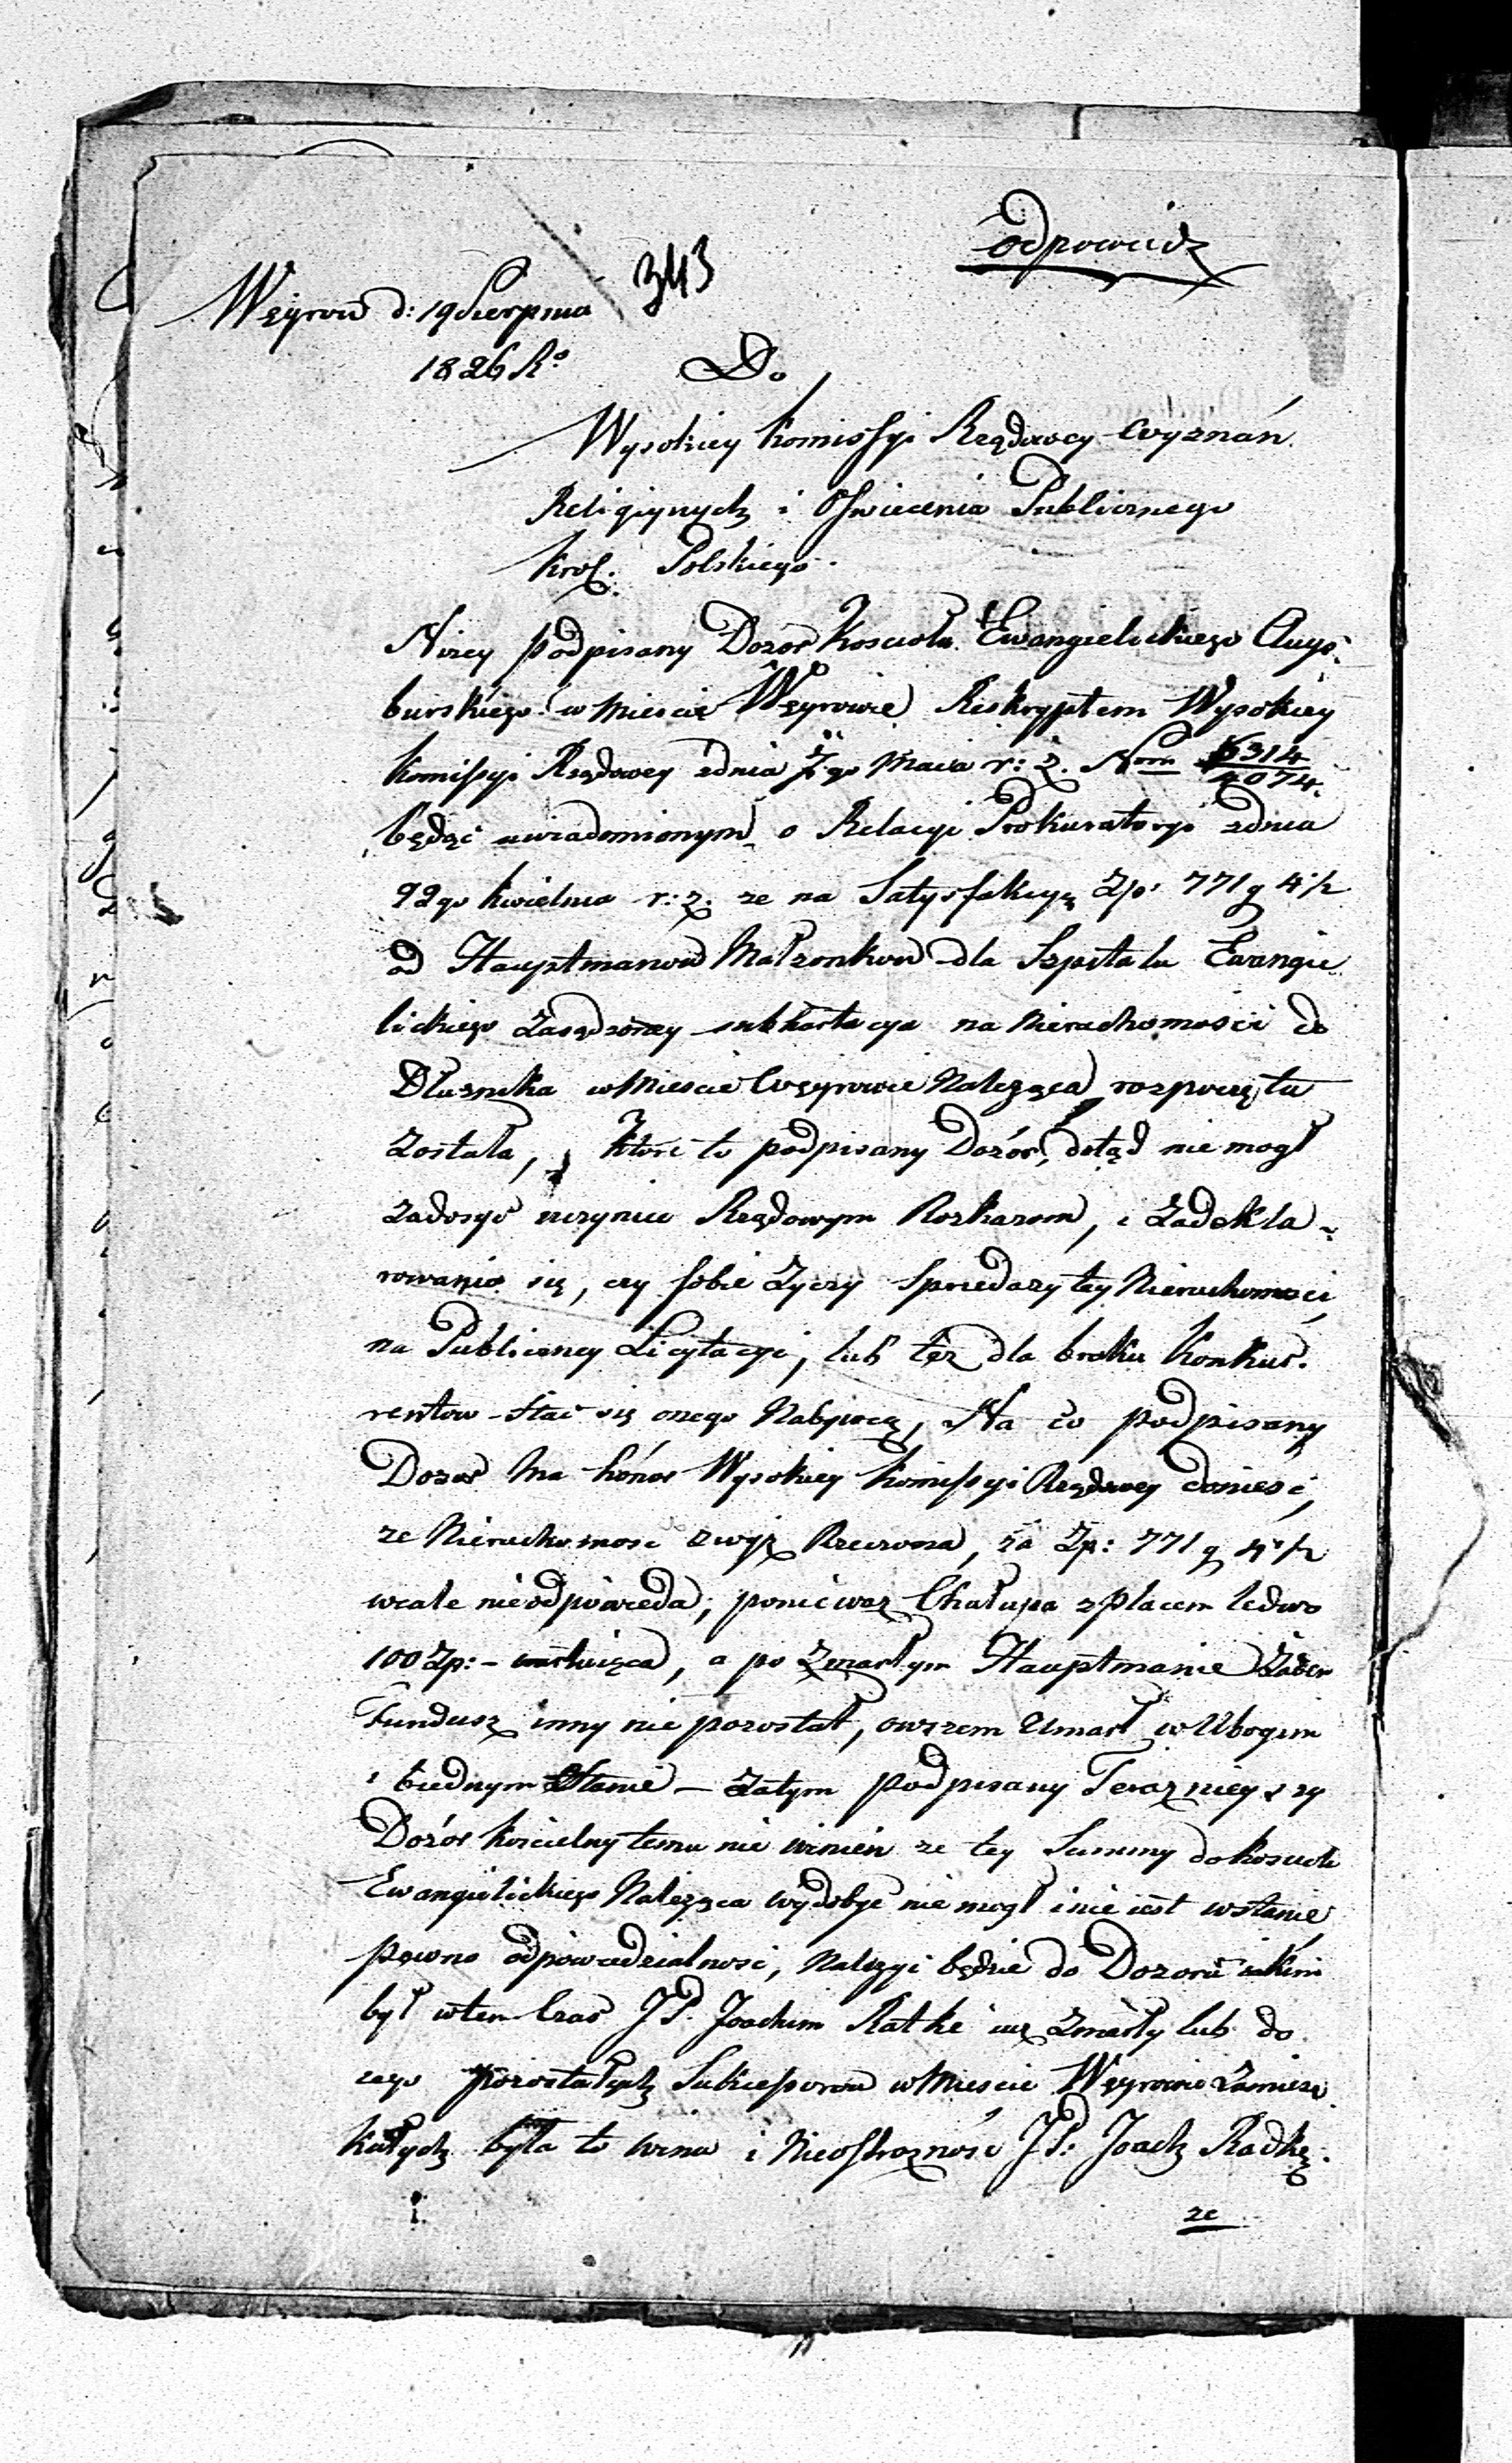 odpowiedz
343
Węgrow d: 19 Sierpnia
1826 Ro
Do
Wysokiey Komissyi Rządowey Wyznań
Religiynych i Oswiecenia Publicznego
Krol. Polskiego.
Nizey podpisany Dozór Koscioła Ewangielickiego Augs-
burskiego w Miescie Węgrowie Reskryptem Wysokiey
Komissyi Rządowey zdnia 7go Maia r: z. Nrm 6314/4074.
będąc uwiadomionym o Relacyi Prokuratoryi zdnia
22go kwietnia r: z. ze na Satysfakcyą Zp: 771 g 4 1/2
od Hauptmanow Małzonkow dla Szpitalu Ewangie
lickiego Zasądzoney subhastacya na Nieruchomosci do
Dłuznika w Miescie Węgrowie Nalezącą rozpoczęta
Została, któré to podpisany Dozór, dotąd nie mogł
zadosyć uczynić Rządowym Rozkazom, i Zadekla-
rowania się, czy sobie Zyczy Sprzedazy tey Nieruchomosci
na Publiczney Licytacyi, lub téz dla braku Konkur-
rentow stać się onego Nabywcą, Na co podpisany
Dozor Ma honor Wysokiey Komissyi Rządowey doniesć,
ze Nieruchomosc zwyz Rzeczona, za Zp: 771 g 4 1/2
wcale nieodpowieda; poniewaz Chałupa z Placem ledwo
100 Zp: - , a po Zmarłym Hauptmanie Zaden
Fundusz inny nie pozostał, owszem Umarł w Ubogim
i biednym Stanie - Zatym podpisany Terazniey szy
Dozór Koscielny temu nie winien ze tey Summy do Koscioła
Ewangielickiego Naleząca wydobyc nie mogł i nie iest wstanie
pewno odpowiedzialnosc, Nalezyi będzie do Dozoru iakim
był w ten Czas JP. Joachim Ratke iuz Zmarły lub do
iego pozostałych Sukcessorow w Miescie Węgrowie Zamiesz
kałych była to wina i Nieostroznosc JP: Joach Radkę.
ze